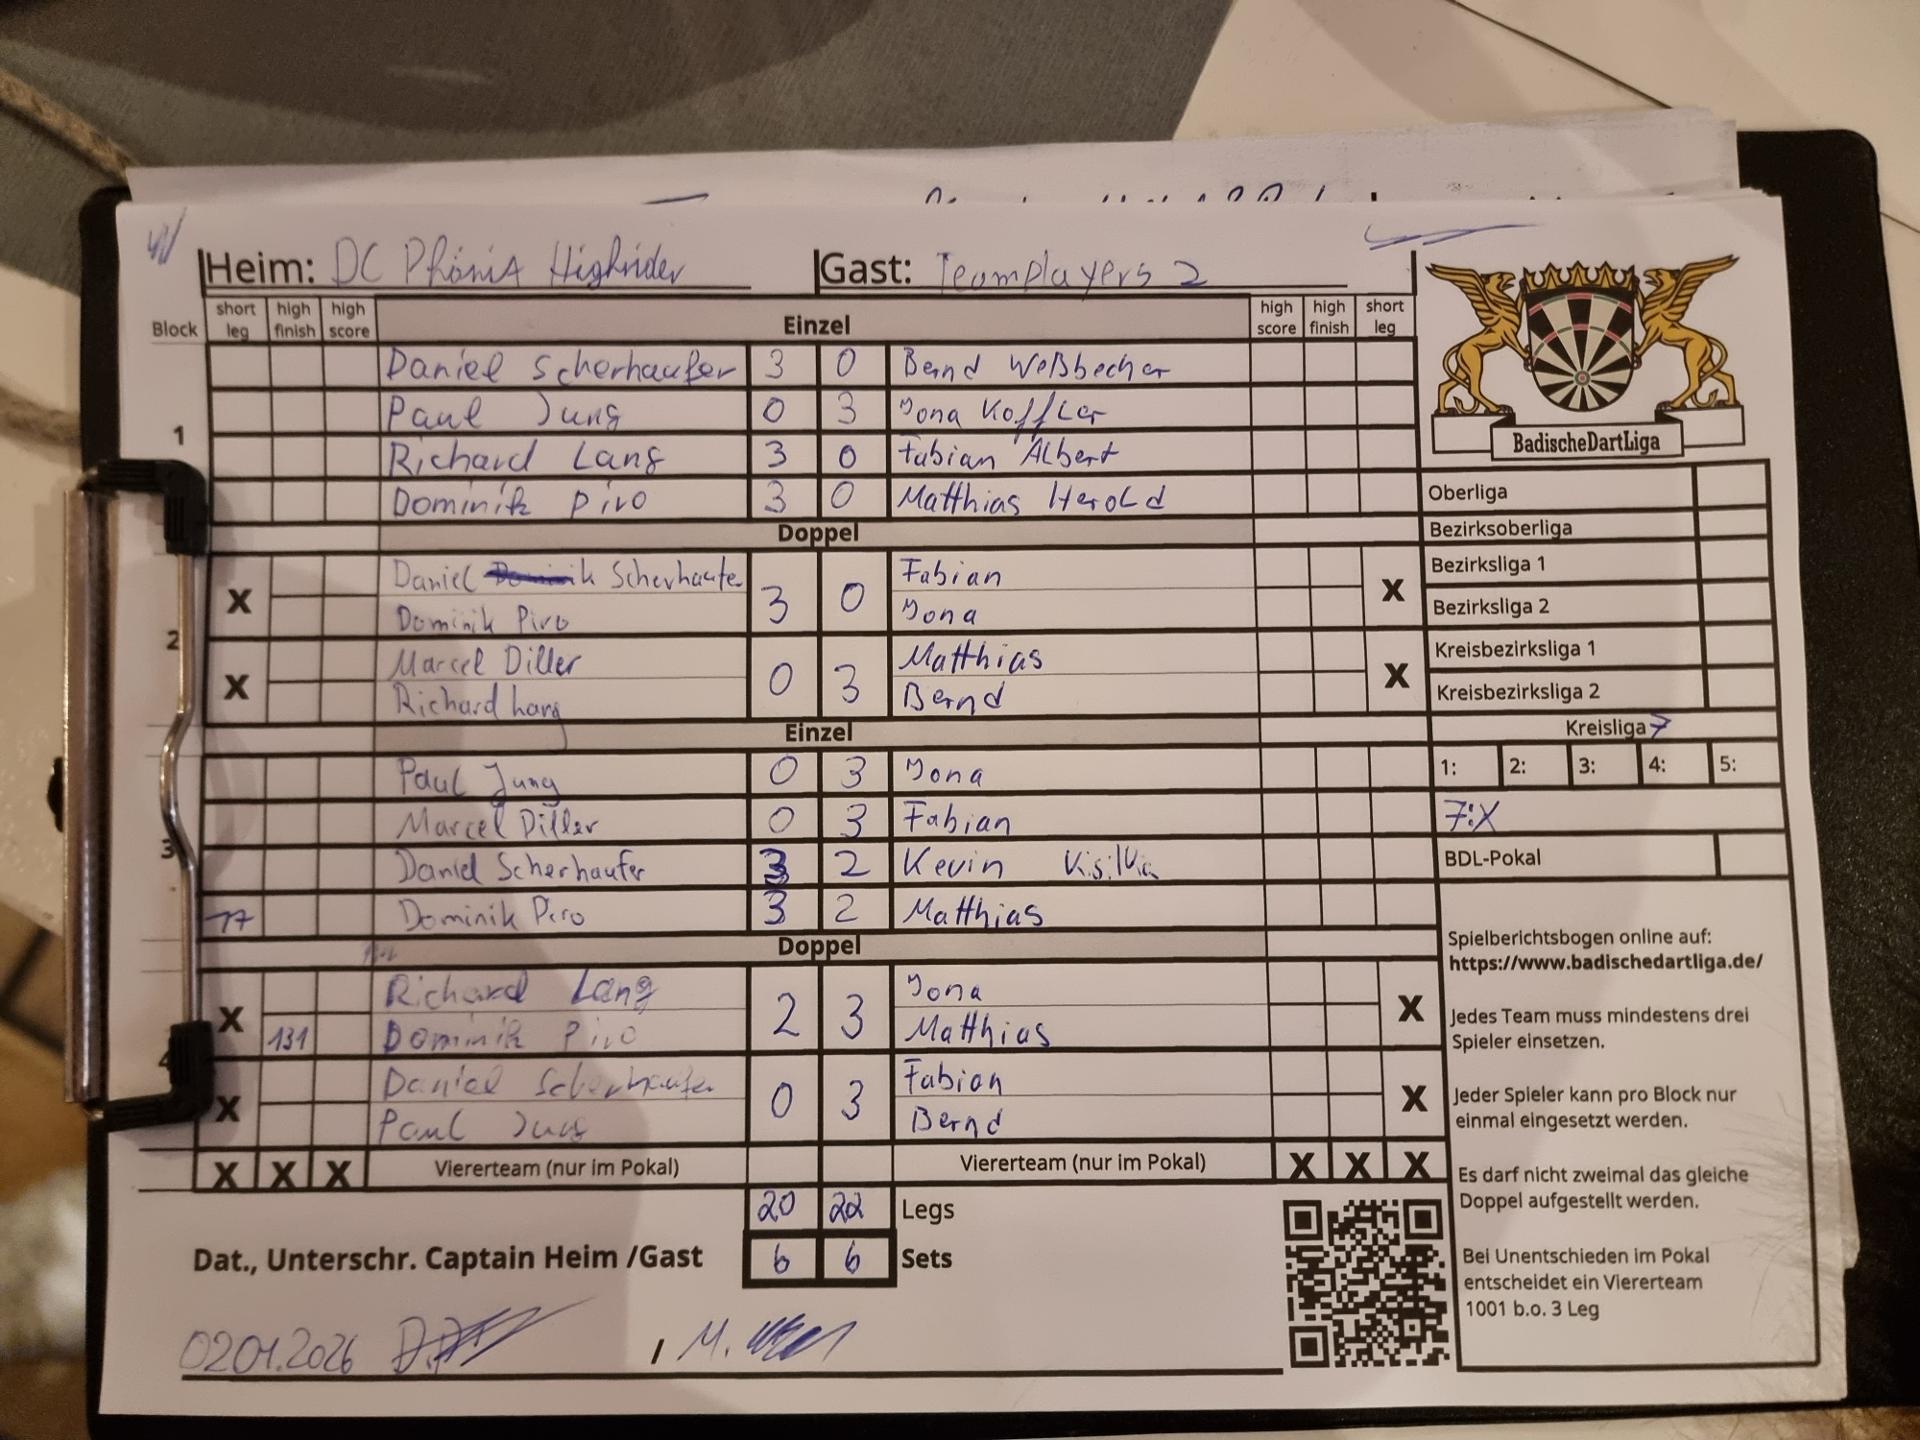 Heim: DC Phönix Highrider Gast: Teamplayers 2
Block short leg high finish high score Einzel high score high finish short leg
Daniel Scherhaufer 3 0 Bernd Weßbecher
1 Paul Jung 0 3 Jona Koffler
Richard Lang 3 0 Fabian Albert
Dominik Piro 3 0 Matthias Herold
Doppel
X Daniel Scherhaufe 3 0 Fabian X
Dominik Piro Jona
2
X Marcel Diller 0 3 Matthias X
Richard Lang Bernd
Einzel
Paul Jung 0 3 Jona
Marcel Diller 0 3 Fabian
3 Daniel Scherhaufer 3 2 Kevin
17 Dominik Piro 3 2 Matthias
Doppel
X Richard Lang 2 3 Jona X
131 Dominik Piro Matthias
4
X Daniel Scherhaufer 0 3 Fabian X
Paul Jung Bernd
X X X Viererteam (nur im Pokal) Viererteam (nur im Pokal) X X X
20 22 Legs
Dat., Unterschr. Captain Heim /Gast 6 6 Sets
02.01.2026 / M.
BadischeDartLiga
Oberliga
Bezirksoberliga
Bezirksliga 1
Bezirksliga 2
Kreisbezirksliga 1
Kreisbezirksliga 2
Kreisliga 7
1: 2: 3: 4: 5:
7:X
BDL-Pokal
Spielberichtsbogen online auf:
https://www.badischedartliga.de/
Jedes Team muss mindestens drei
Spieler einsetzen.
Jeder Spieler kann pro Block nur
einmal eingesetzt werden.
Es darf nicht zweimal das gleiche
Doppel aufgestellt werden.
Bei Unentschieden im Pokal
entscheidet ein Viererteam
1001 b.o. 3 Leg